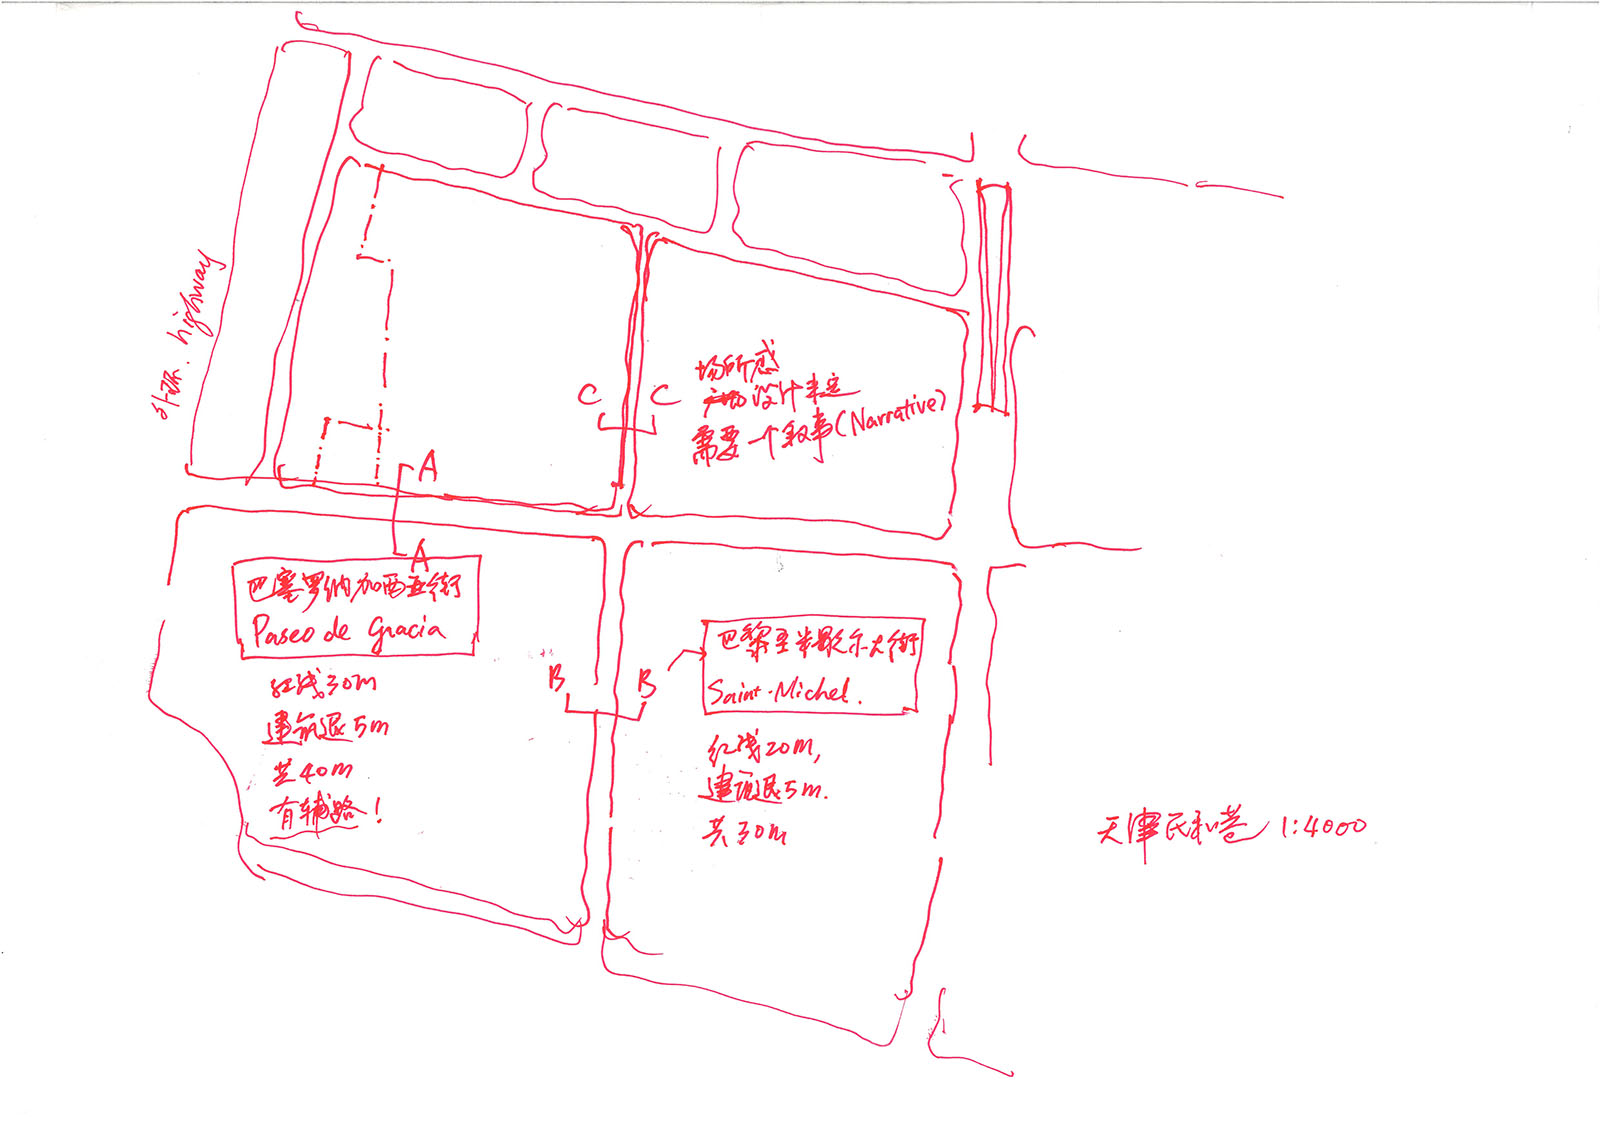 外环. highway
场所感
设计丰定
需要一个叙事(Narrative)
C C
A
A
巴塞罗纳加西亚街
Paseo de Gracia
红线30m
建筑退5m
共40m
有辅路!
B B
巴黎圣米歇尔大街
Saint-Michel.
红线20m,
建筑退5m.
共30m
天津民和巷 1:4000